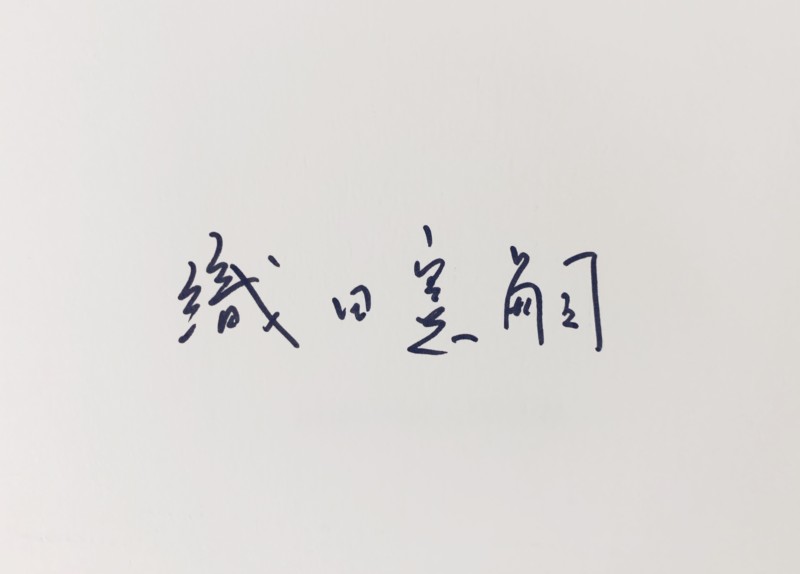 織田憲嗣